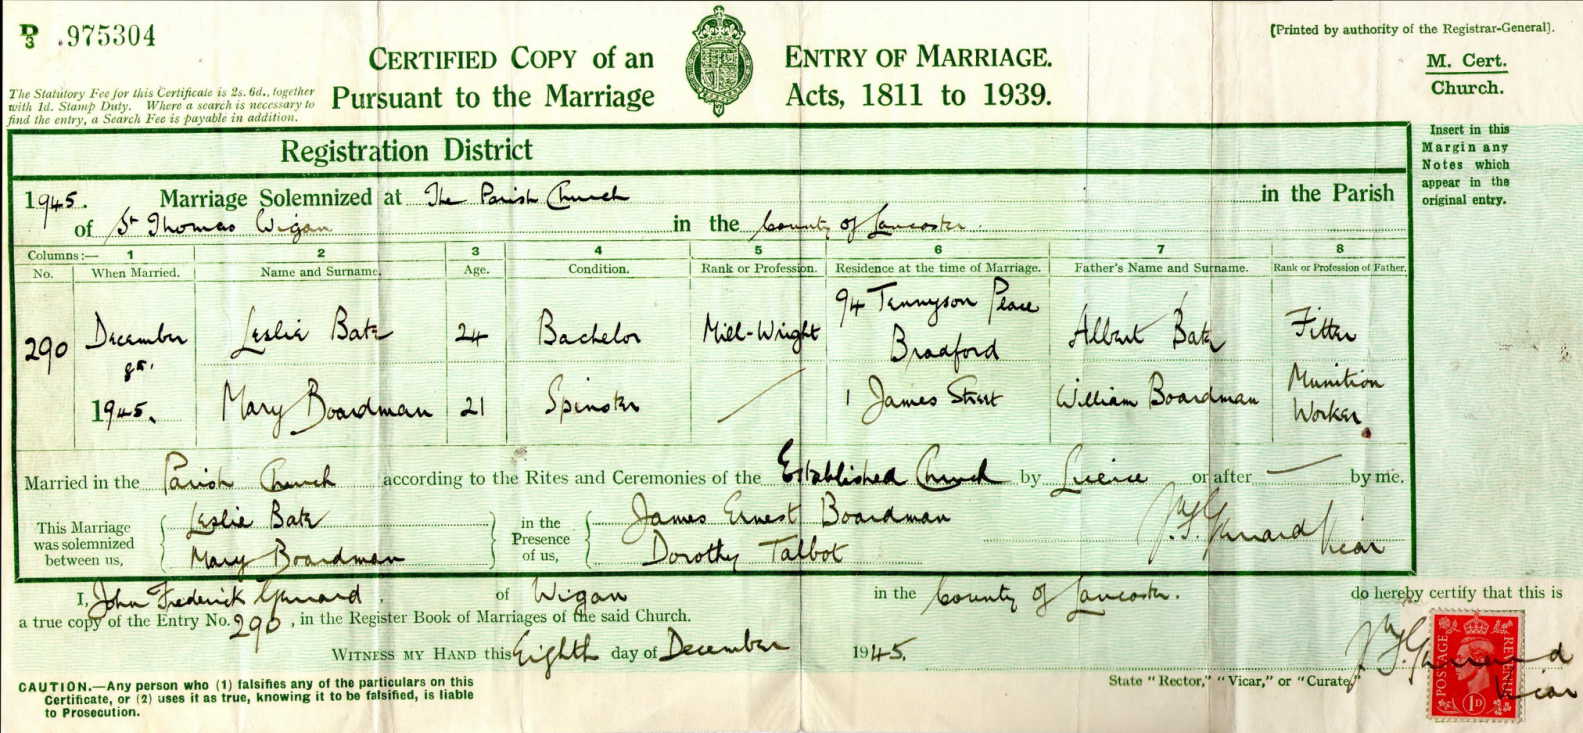 D 3 .975304
[Printed by authority of the Registrar-General].
CERTIFIED COPY of an ENTRY OF MARRIAGE.
Pursuant to the Marriage Acts, 1811 to 1939.
M. Cert.
Church.
The Statutory Fee for this Certificate is 2s. 6d., together
with 1d. Stamp Duty. Where a search is necessary to
find the entry, a Search Fee is payable in addition.
Insert in this
Margin any
Notes which
appear in the
original entry.
Registration District
1945. Marriage Solemnized at The Parish Church in the Parish
of St Thomas Wigan in the County of Lancaster.
Columns:— 1 2 3 4 5 6 7 8
No. When Married. Name and Surname. Age. Condition. Rank or Profession. Residence at the time of Marriage. Father's Name and Surname. Rank or Profession of Father.
290 December 8th. 1945.
Leslie Bate 24 Bachelor Mill-Wright 94 Tennyson Place Bradford Albert Bate Fitter
Mary Boardman 21 Spinster 1 James Street William Boardman Munition Worker
Married in the Parish Church according to the Rites and Ceremonies of the Established Church by Licence or after by me.
This Marriage
was solemnized
between us,
Leslie Bate
Mary Boardman
in the
Presence
of us,
James Ernest Boardman
Dorothy Talbot
J. F. Garrard
Vicar
I, John Frederick Garrard. of Wigan in the County of Lancaster. do hereby certify that this is
a true copy of the Entry No. 290, in the Register Book of Marriages of the said Church.
WITNESS MY HAND this Eighth day of December 1945.
J. F. Garrard
Vicar
State "Rector," "Vicar," or "Curate,"
CAUTION.—Any person who (1) falsifies any of the particulars on this
Certificate, or (2) uses it as true, knowing it to be falsified, is liable
to Prosecution.
POSTAGE
REVENUE
1D